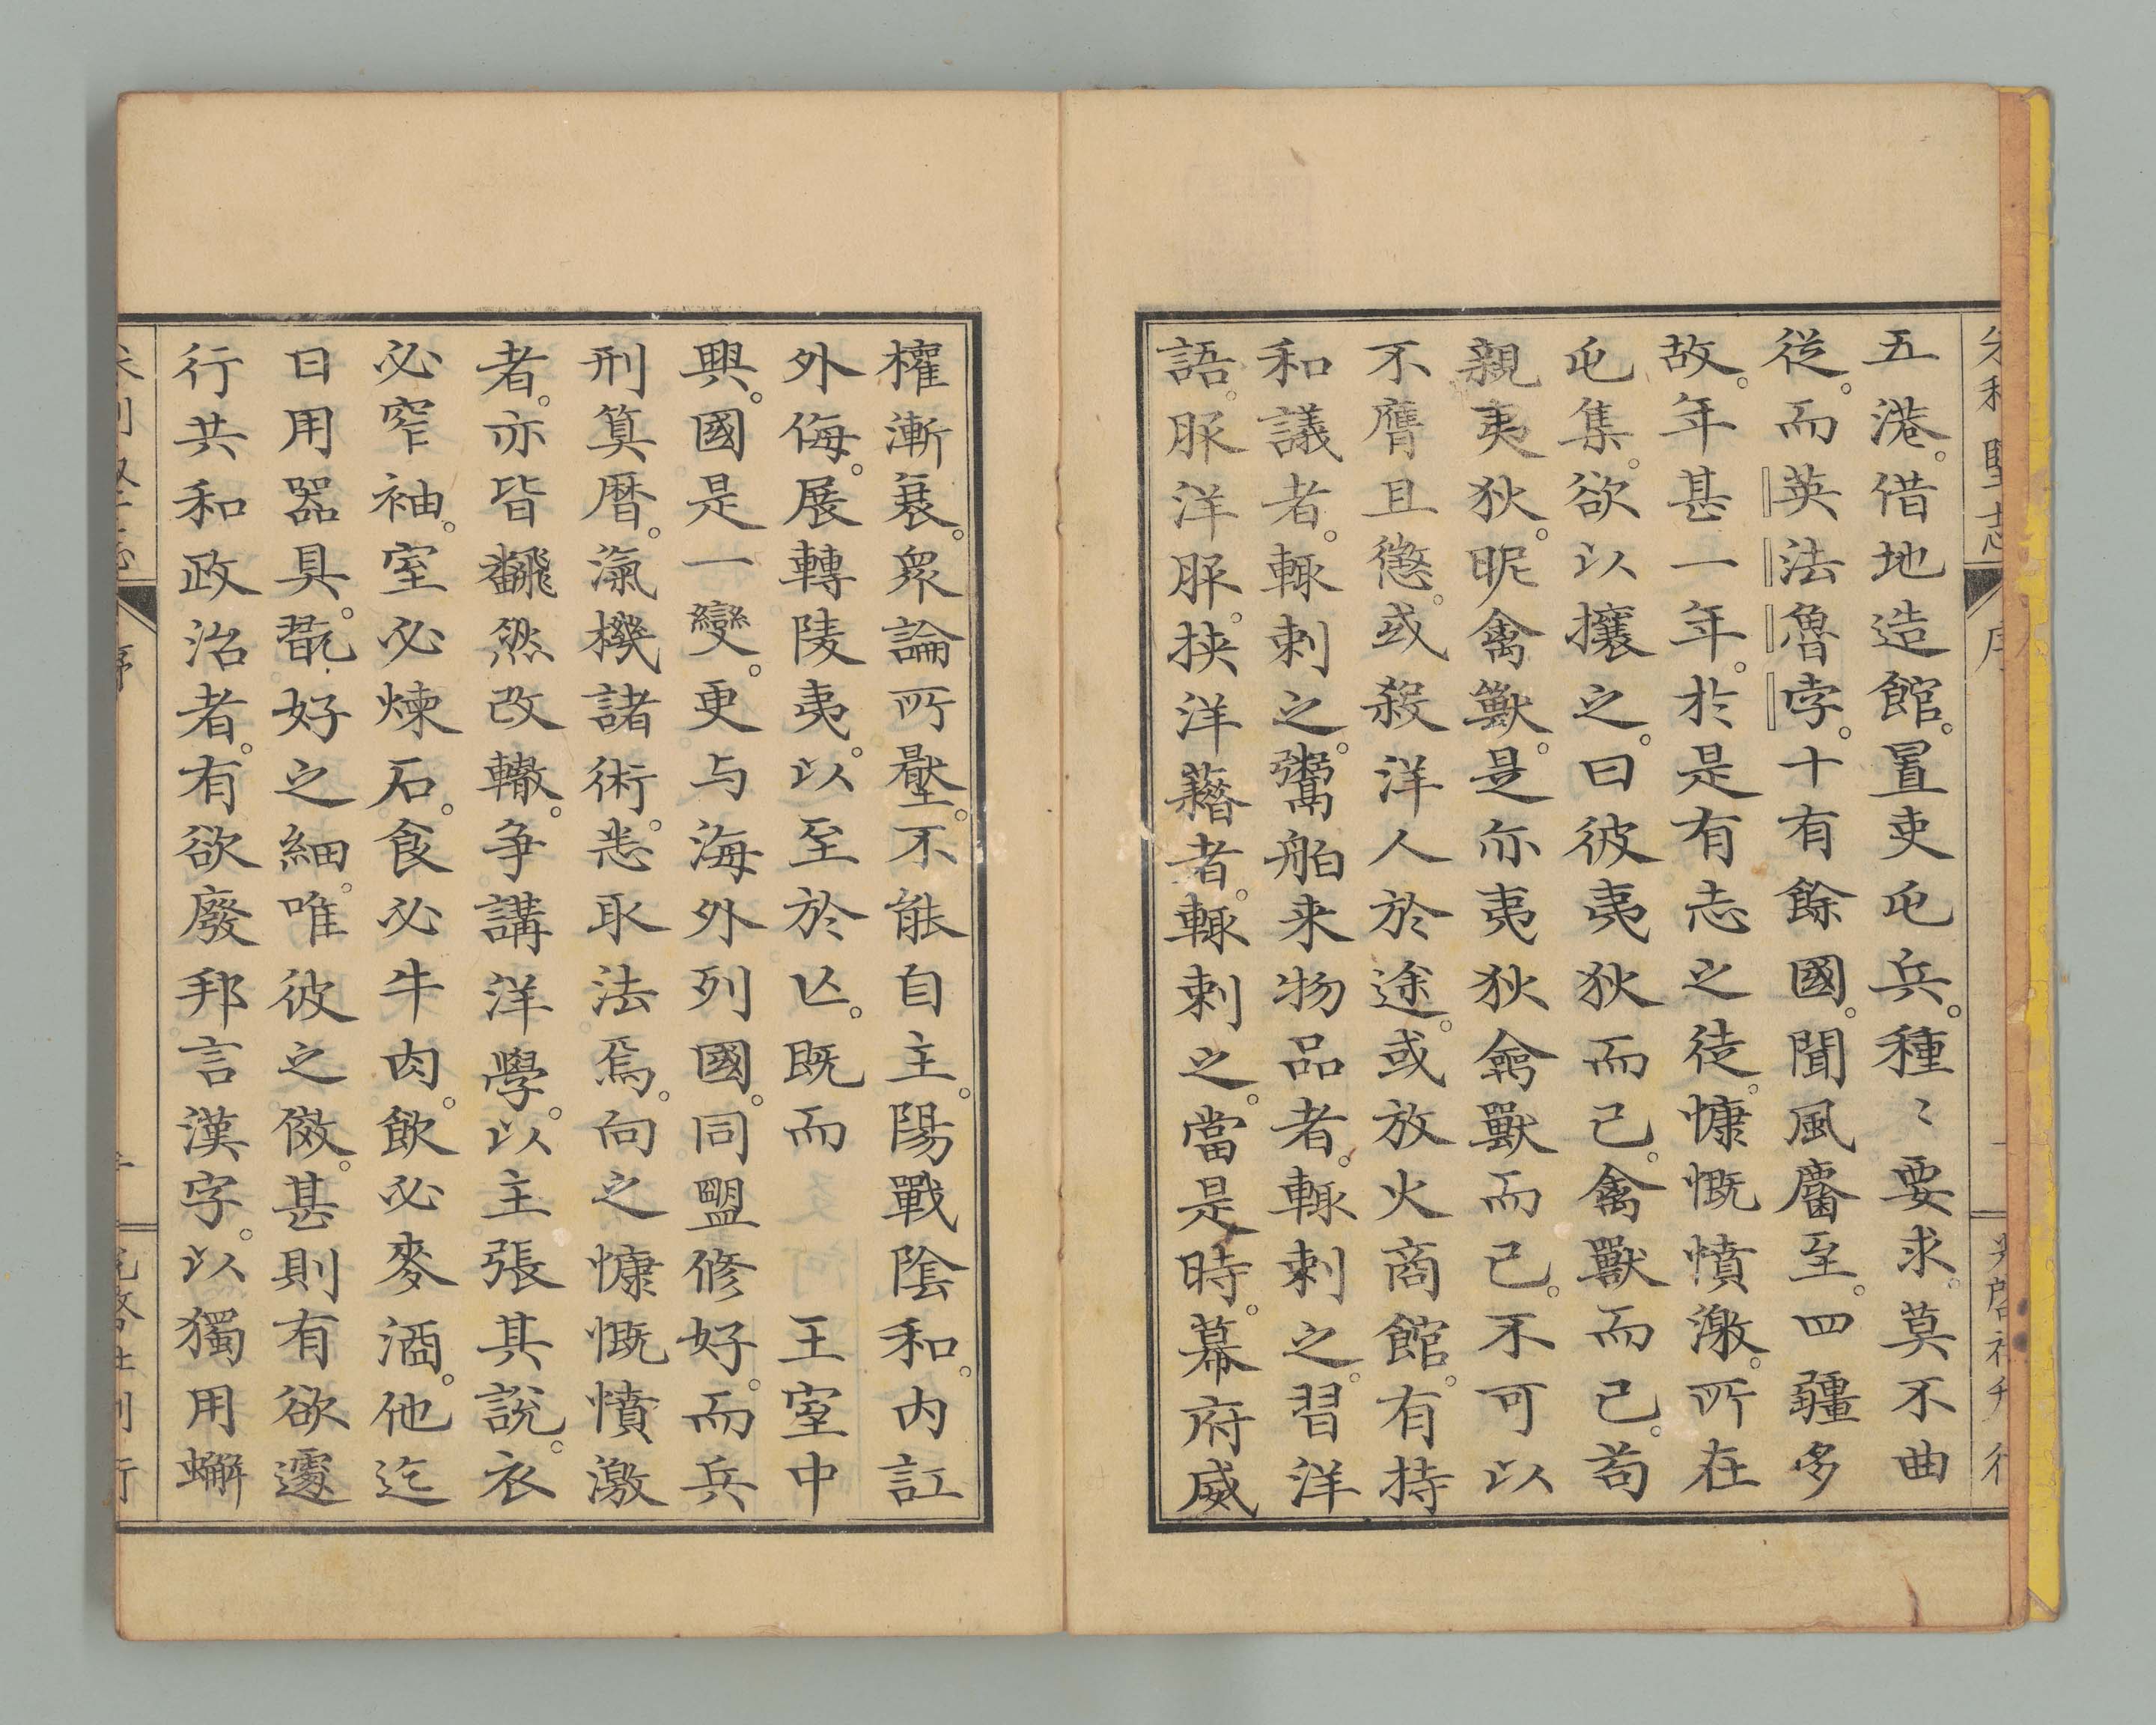 五港。借地造館。置吏屯兵。種〻要求。莫不曲
從。而英法魯孛。十有餘國。聞風麕至。四疆多
故。年甚一年。於是有志之徒。慷慨憤激。所在
屯集。欲以攘之。曰彼夷狄而已。禽獸而已。苟
親夷狄。昵禽獸。是亦夷狄禽獸而已。不可以
不膺且懲。或殺洋人於途。或放火商館。有持
和議者。輙刺之。鬻舶来物品者。輙刺之。習洋
語。服洋服。挟洋籍者。輙刺之。當是時。幕府威
權漸衰。衆論所壓。不能自主。陽戰陰和。内訌
外侮。展轉陵夷。以至於亡。既而　王室中
興。國是一變。更与海外列國。同盟修好。而兵
刑算暦。滊機諸術。悉取法焉。向之慷慨憤激
者。亦皆飜然改轍。争講洋學。以主張其說。衣
必窄袖。室必煉石。食必牛肉。飲必麥酒。他迄
日用器具。翫好之細。唯彼之傚。甚則有欲遽
行共和政治者。有欲廢邦言漢字。以獨用蠏
序